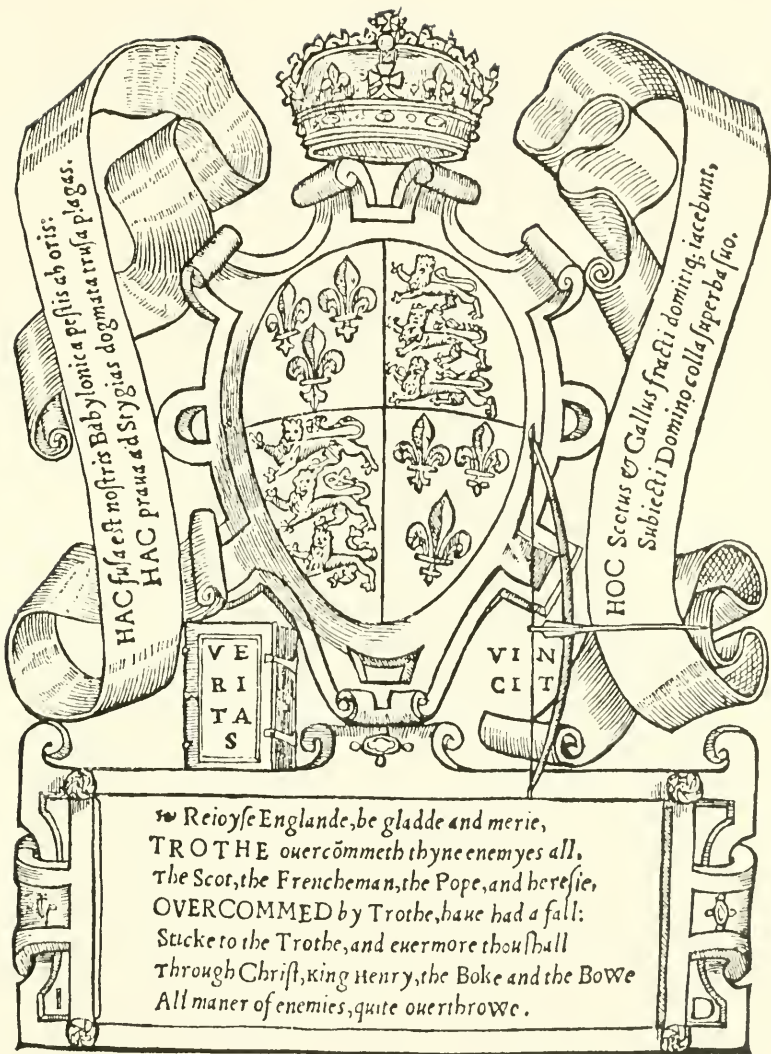 HAC fuſa est noſtris Babylonica peſtis ab oris:
HAC praua ad Stygias dogmata truſa plagas.
HOC Scotus & Gallus fracti domitiq; iacebunt,
Subiecti Domino colla ſuperba ſuo.
VE
RI
TA
S
VIN
CIT
Reioyſe Englande, be gladde and merie,
TROTHE ouercōmeth thyne enemyes all,
The Scot, the Frencheman, the Pope, and hereſie,
OVERCOMMED by Trothe, haue had a fall:
Sticke to the Trothe, and euermore thou ſhall
Through Chriſt, King Henry, the Boke and the Bowe
All maner of enemies, quite ouerthrowe.
I D